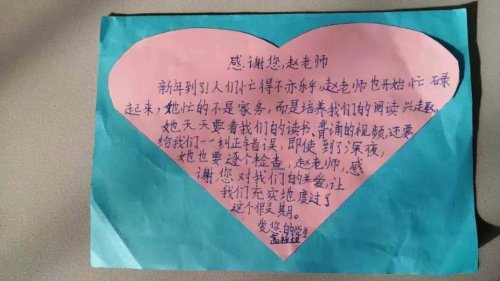 感谢您，赵老师
新年到了！人们忙得不亦乐乎，赵老师也开始忙碌
起来，她忙的不是家务，而是培养我们的阅读兴趣。
她天天要看我们的读书、背诵的视频，还要
给我们一一纠正错误，即使到了深夜，
她也要逐个检查，赵老师，感
谢您对我们的关爱，让
我们充实地度过了
这个假期。
爱您的学生